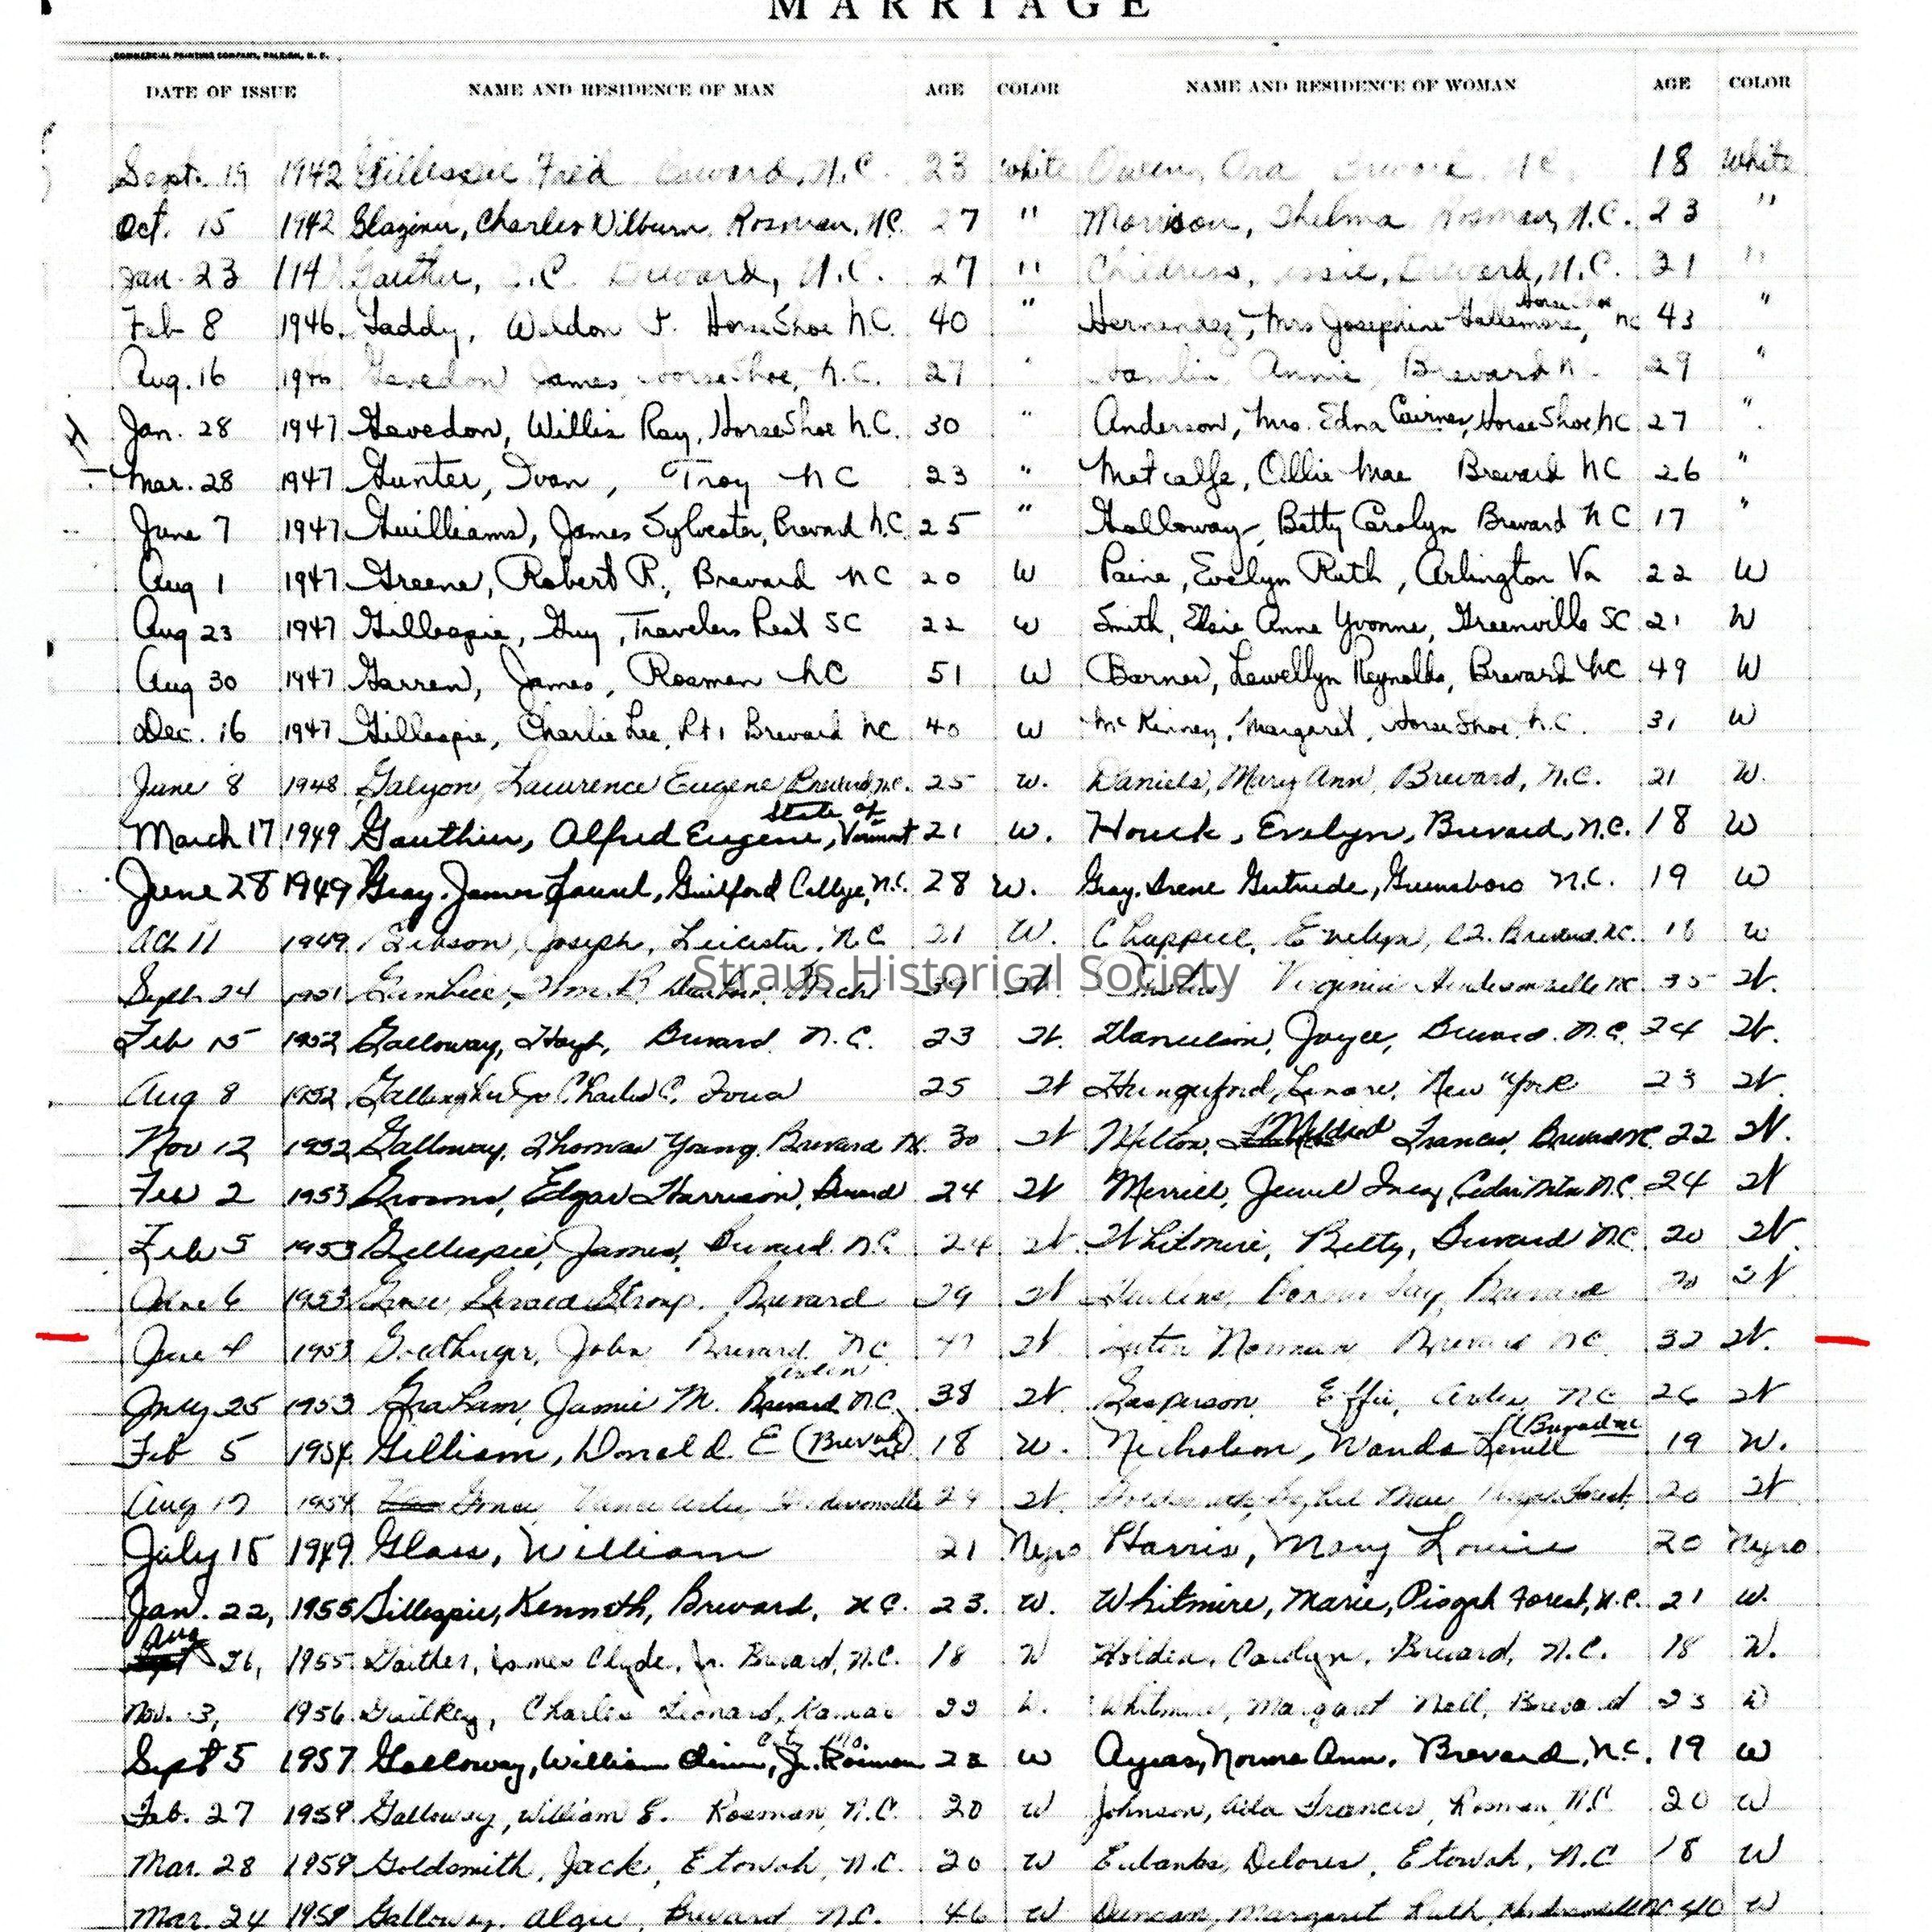 MARRIAGE
COMMERCIAL PRINTING COMPANY, RALEIGH, N. C.
DATE OF ISSUE NAME AND RESIDENCE OF MAN AGE COLOR NAME AND RESIDENCE OF WOMAN AGE COLOR
Sept. 19 1942 Gillespie Fred Brevard, N.C. 23 White Owen, Ora Brevard N.C. 18 White
Oct. 15 1942 Glazener, Charles Wilburn, Rosman, N.C. 27 " Morrison, Thelma Rosman, N.C. 23 "
Jan. 23 Brevard, N.C. 27 " Childress, Brevard, N.C. 21 "
Feb 8 1946. Gaddy, Weldon F. HorseShoe N.C. 40 " Hernandez, Mrs Josephine Gallamore, Horse Shoe NC 43 "
Aug. 16 Gevedon James HorseShoe, N.C. 27 " Hamlin, Annie, Brevard N. 29 "
Jan. 28 1947. Gevedon, Willis Ray, HorseShoe N.C. 30 " Anderson, Mrs. Edna Cairnes, HorseShoe, NC 27 "
Mar. 28 1947 Gunter, Ivan, Troy NC 23 " Metcalfe, Ollie Mae Brevard NC 26 "
June 7 1947 Guilliams, James Sylvester, Brevard N.C. 25 " Galloway, Betty Carolyn Brevard NC 17 "
Aug 1 1947 Greene, Robert R., Brevard NC 20 W Paine, Evelyn Ruth, Arlington Va 22 W
Aug 23 1947 Gillespie, Guy, Travelers Rest SC 22 W Smith, Elsie Anne Yvonne, Greenville SC 21 W
Aug 30 1947 Garren, James, Rosman NC 51 W Barner, Lewellyn Reynolds, Brevard NC 49 W
Dec. 16 1947 Gillespie, Charlie Lee, Rt 1 Brevard NC 40 W McKinney, Margaret, HorseShoe, N.C. 31 W
June 8 1948 Galyon, Lawrence Eugene Brevard, N.C. 25 W. Daniels, Mary Ann, Brevard, N.C. 21 W.
March 17 1949 Gauthier, Alfred Eugene, State of Vermont 21 W. Houck, Evelyn, Brevard, N.C. 18 W
June 28 1949 Gray, James Laurel, Guilford College, N.C. 28 W. Gray, Irene Gertrude, Greensboro N.C. 19 W
Oct 11 1949. Gibson, Joseph, Leicester, N.C 21 W. Chappell, Evelyn, R2. Brevard, N.C. 18 W
Straus Historical Society
Sept. 24 1951 Wm. R. Mich 39 W. Virginia Hendersonville NC 35 W.
Feb 15 1952 Galloway, Hoyt, Brevard N.C. 23 W. Joyce, Brevard. N.C. 24 W.
Aug 8 1952 Gallengher Jr Charles C. Iowa 25 W Hungerford, Lenore, New York 23 W
Nov 12 1952 Galloway, Thomas Young, Brevard NC. 30 W Melton, Mildred Frances, Brevard NC 22 W.
Feb 2 1953 Edgar Harrison, Brevard 24 W Merrill, Jewel Inez, Cedar Mtn N.C. 24 W
Feb 5 1953 Gillespie, James, Brevard N.C. 24 W. Whitmire, Betty, Brevard N.C. 20 W.
June 6 1953 Stroup. Brevard 29 W Brevard 20 W
June 4 1953 John Brevard NC 47 W Norman Brevard NC. 32 W.
July 25 1953 Graham, Jamie M. Arden Brevard N.C. 38 W Gasperson Effie, Arden, NC 26 W
Feb 5 1954 Gilliam, Donald E (Brevard NC) 18 W. Nicholson, Wanda Lenill (Brevard NC 19 W.
Aug 17 1954 Hendersonville 24 W Mae Pisgah Forest, 20 W
July 15 1949. Glass, William 21 Negro Harris, Mary Louise 20 Negro
Jan. 22, 1955 Gillespie, Kenneth, Brevard, N.C. 23. W. Whitmire, Marie, Pisgah Forest, N.C. 21 W.
Aug Sept 26, 1955 Gaither, James Clyde, Jr. Brevard, N.C. 18 W Holden, Carolyn, Brevard, N.C. 18 W.
Nov. 3, 1956 Guilkey, Charles Leonard, Kansas City Mo. 22 W. Whitmire, Margaret Nell, Brevard 23 W
Sept 5 1957 Galloway, William Jr. Rosman 22 W Ayers, Norma Ann, Brevard, N.C. 19 W
Feb. 27 1958 Galloway, William E. Rosman, N.C. 20 W Johnson, Ada Frances, Rosman N.C. 20 W
Mar. 28 1959 Goldsmith, Jack, Etowah, N.C. 20 W Eubanks, Delores, Etowah, N.C 18 W
Mar. 24 1958 Galloway, Algie, Brevard, N.C. 46 W Duncan, Margaret Ruth, Hendersonville NC 40 W